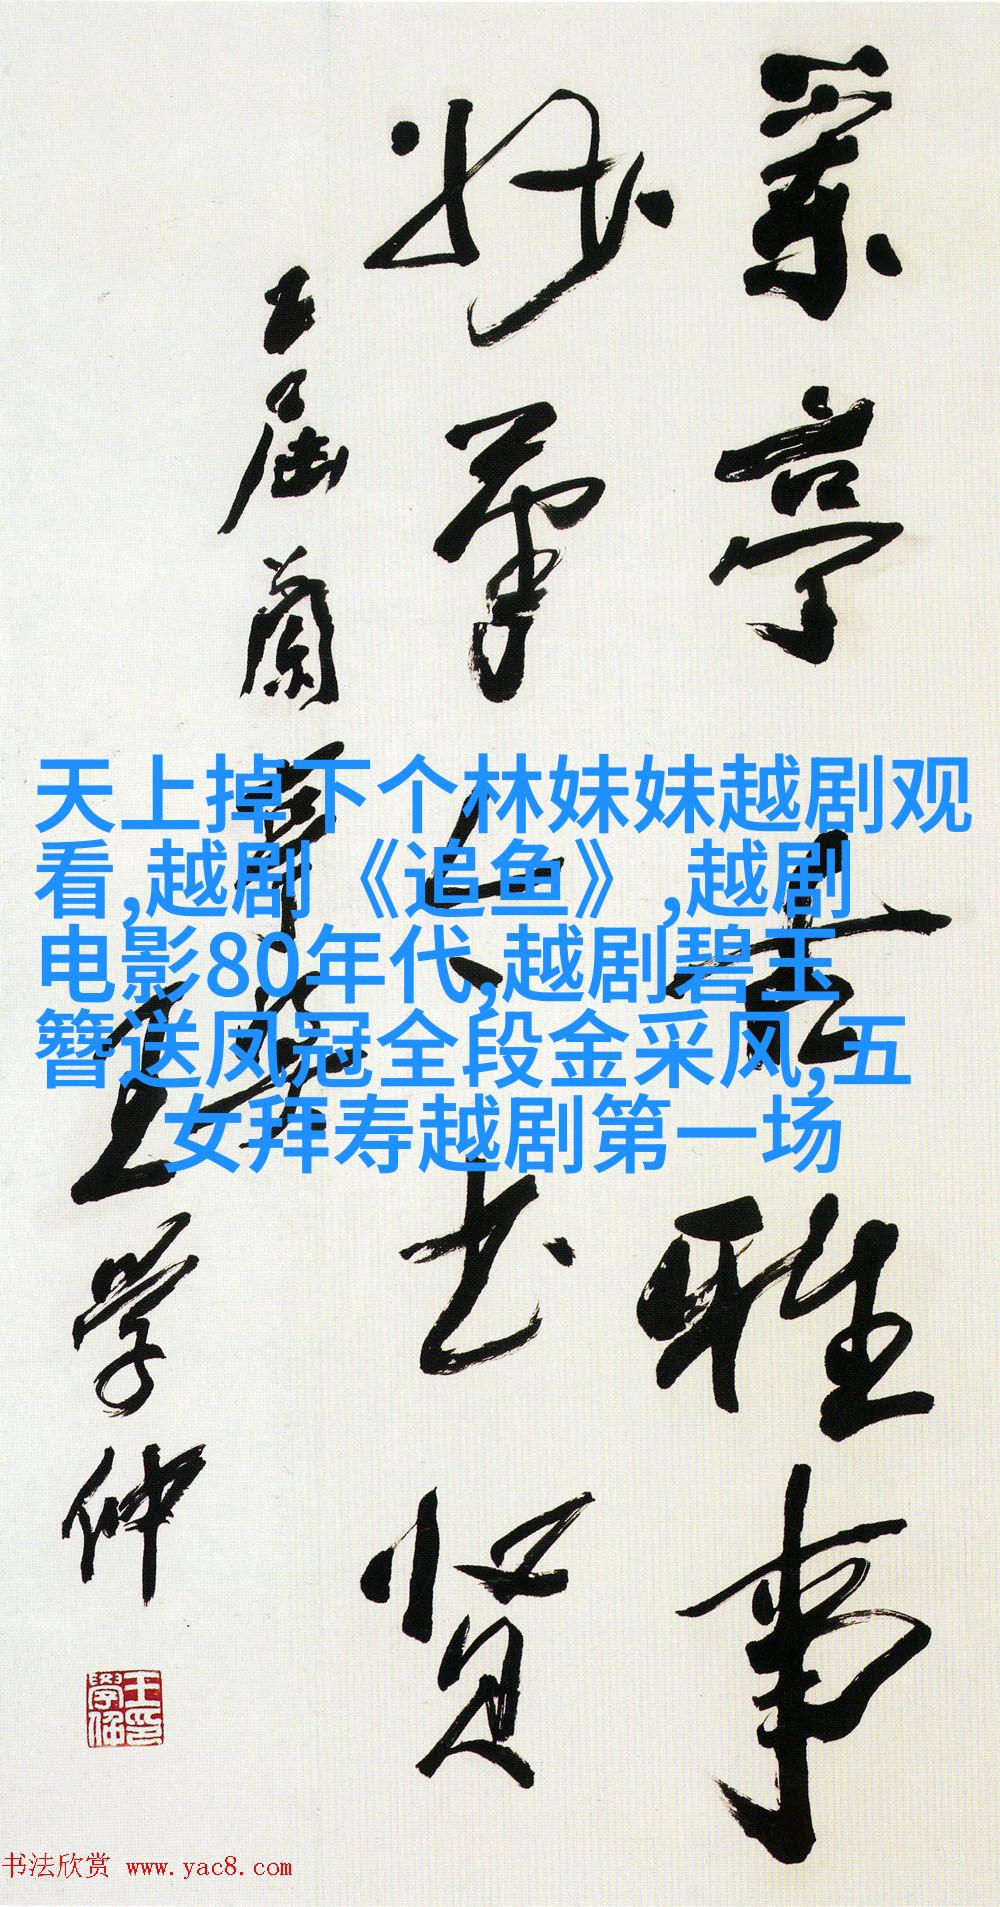 兰亭集雅事
妙笔尽书贤
五届兰亭奖
王学仲
天上掉下个林妹妹越剧观
看,越剧《追鱼》,越剧
电影80年代,越剧碧玉
簪送凤冠全段金采风,五
女拜寿越剧第一场
书法欣赏 www.yac8.com